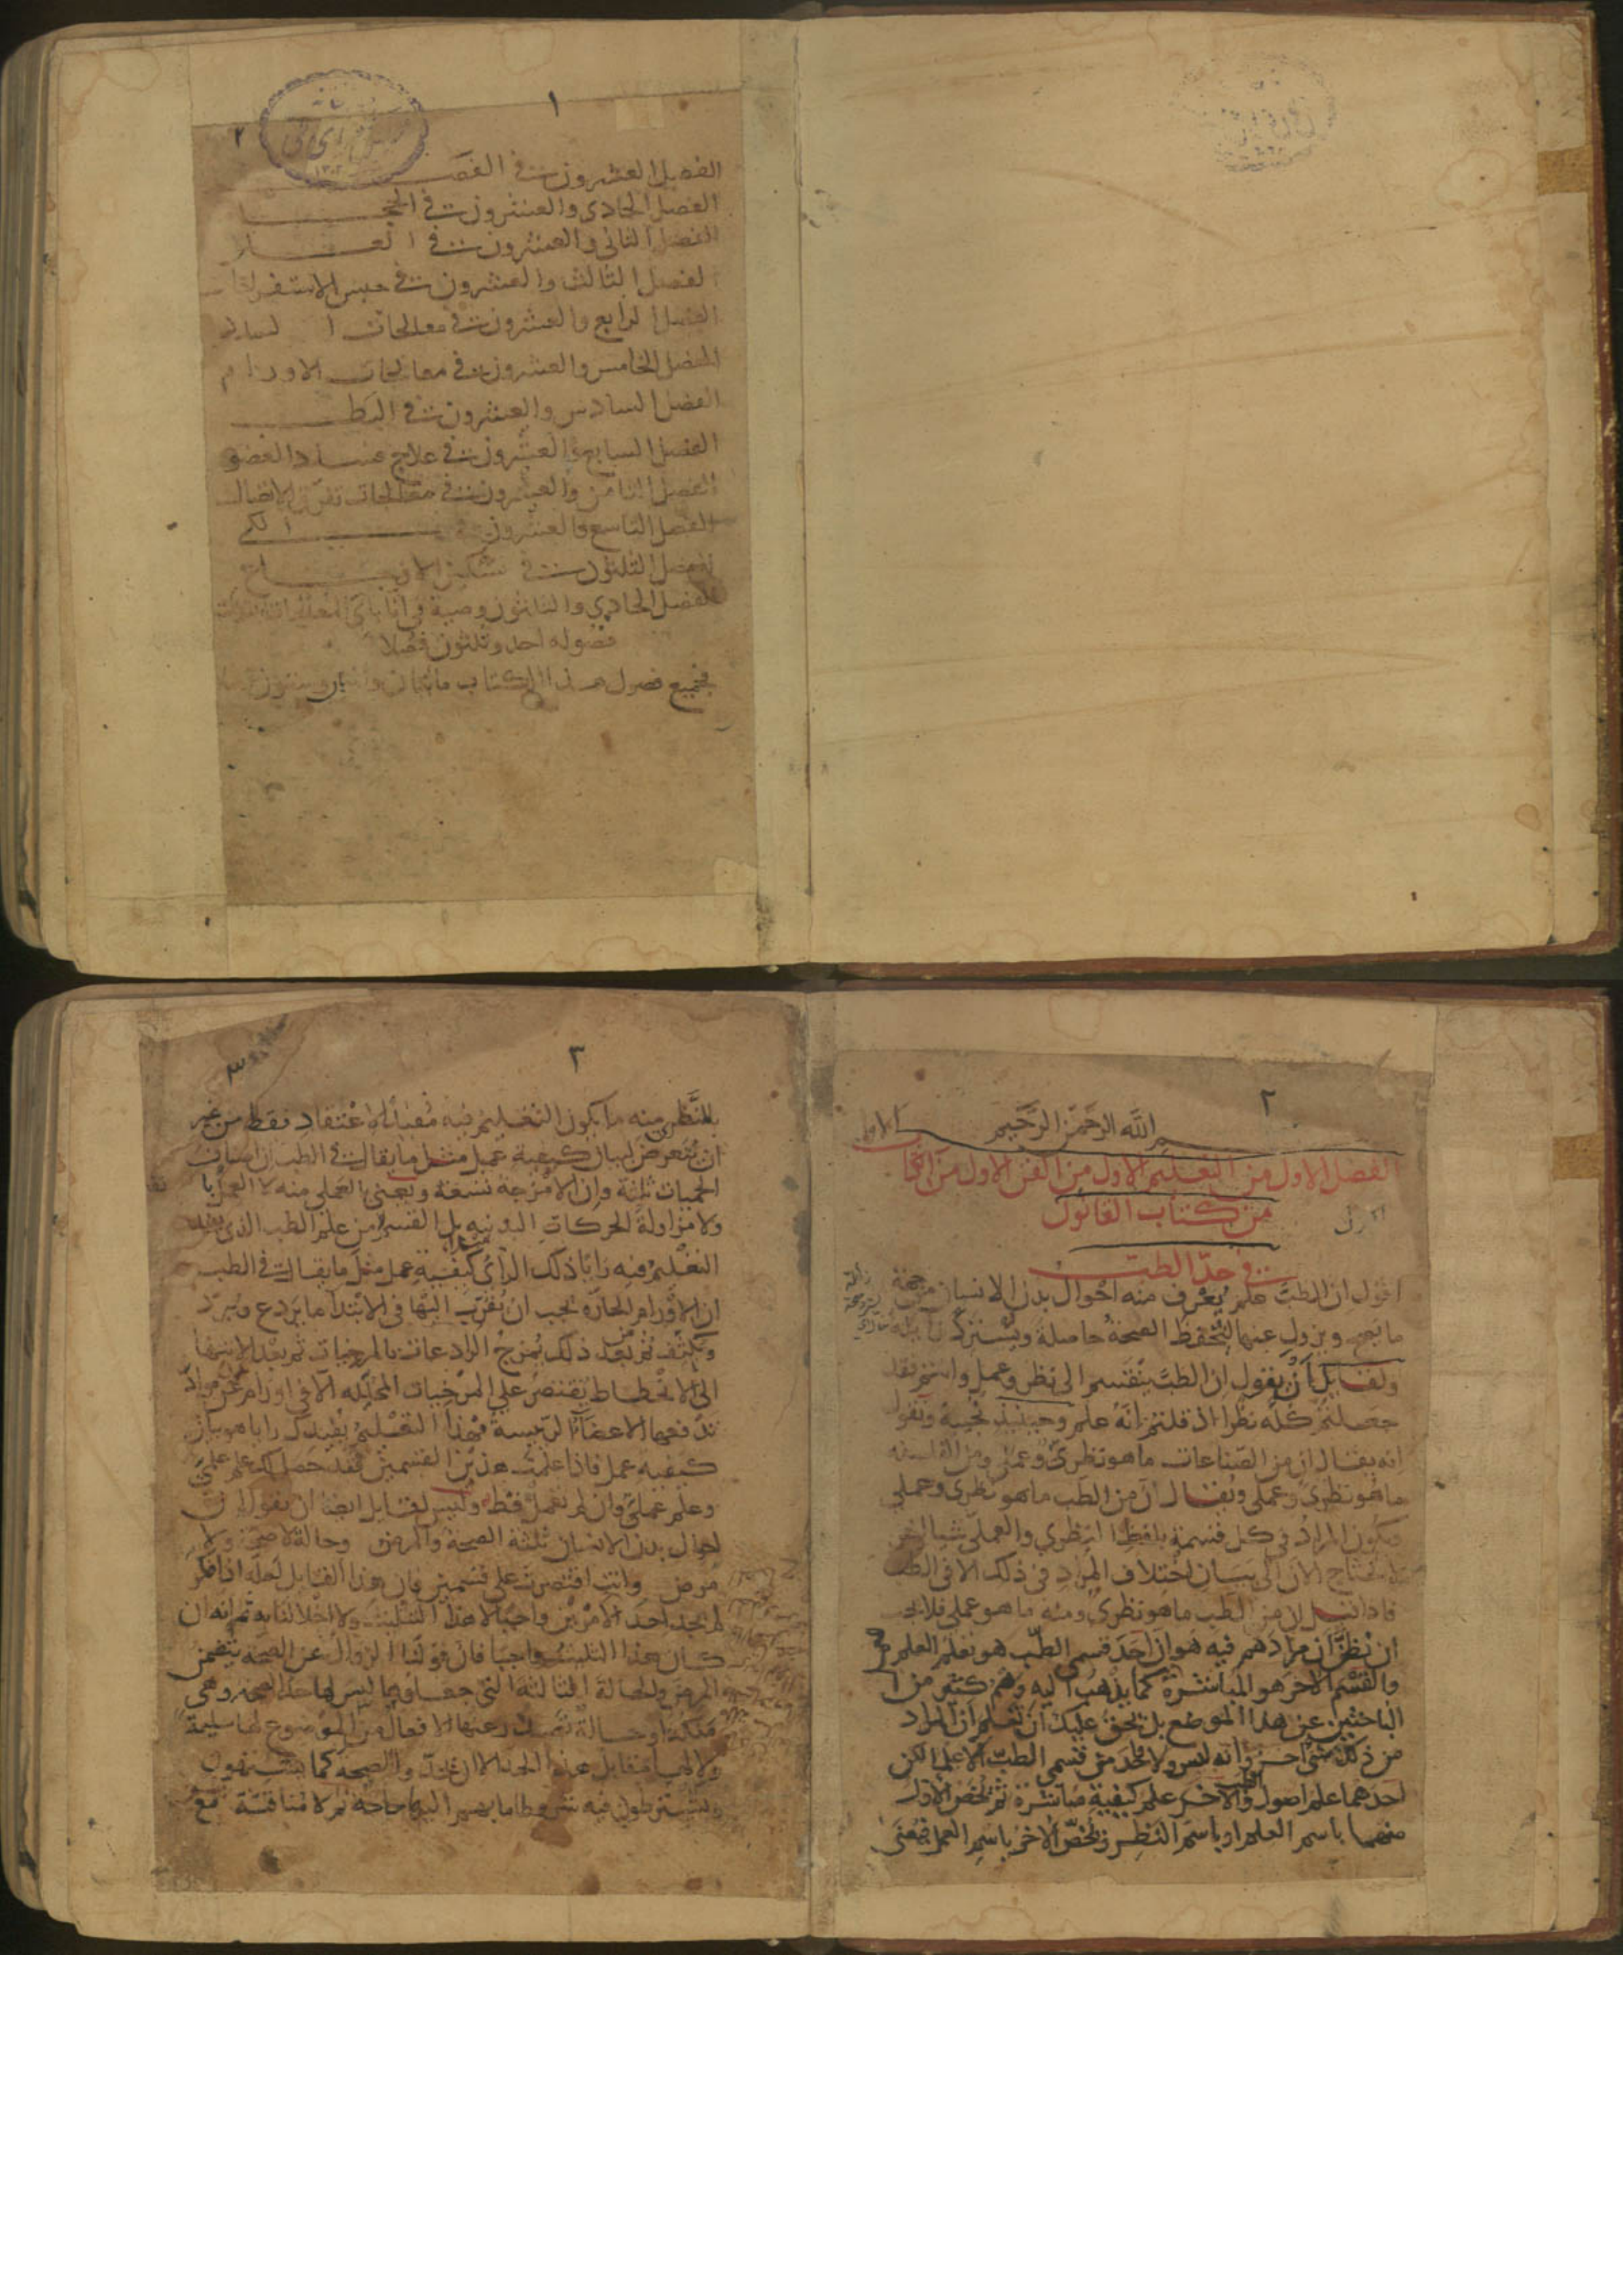 ١
٢
الفصل العشرون في الفصد
الفصل الحادي والعشرون في الحجا
الفصل الثاني والعشرون في العلق
الفصل الثالث والعشرون في حبس الاستفراغات
الفصل الرابع والعشرون في معالجات السدد
الفصل الخامس والعشرون في معالجات الاورام
الفصل السادس والعشرون في البط
الفصل السابع والعشرون في علاج فساد العضو
الفصل الثامن والعشرون في معالجات تفرق الاتصال
الفصل التاسع والعشرون في الكي
الفصل الثلثون في تسكين الاوجاع
الفصل الحادي والثلثون وصية في انا باي المعالجات نبتدئ
فصوله احد وثلثون فصلا
فجميع فصول هذا الكتاب مائتان
٢
بسم الله الرحمن الرحيم
الفصل الاول من التعليم الاول من الفن الاول من الكتاب الاول
من كتاب القانون
في حد الطب
اقول ان الطب علم يعرف منه احوال بدن الانسان من جهة
ما يصح ويزول عنها لتحفظ الصحة حاصلة وتسترد زايلة
ولقايل ان يقول ان الطب ينقسم الى نظر وعمل وانتم فقد
جعلتم كله نظرا اذ قلتم انه علم وحينئذ نجيبه ونقول
انه يقال ان من الصناعات ما هو نظري وعملي ومن الفلسفة
ما هو نظري وعملي ويقال ان من الطب ما هو نظري وعملي
ويكون المراد في كل قسمة بلفظ النظري والعملي شيا اخر
ولا نحتاج الآن الى بيان اختلاف المراد في ذلك الا في الطب
فاذا قيل ان من الطب ما هو نظري ومنه ما هو عملي فلا يجب
ان نظن ان مرادهم فيه هو ان احد قسمي الطب هو تعلم العلم
والقسم الاخر هو المباشرة كما يذهب اليه وهم كثير من
الباحثين عن هذا الموضع بل يحق عليك ان تعلم ان المراد
من ذلك شي اخر وانه ليس ولا واحد من قسمي الطب الا علما لكن
احدهما علم اصول الطب والاخر علم كيفية مباشرة ثم يخص الاول
منهما باسم العلم او باسم النظر ويخص الاخر باسم العمل فنعني
٣
٣
بالنظر منه ما يكون التعليم فيه مفيدا لاعتقاد فقط من غير
ان يتعرض لبيان كيفية عمل مثل ما يقال في الطب ان اصناف
الحميات ثلثة وان الامزجة تسعة ونعني العملي منه لا العمل
ولا مزاولة الحركات البدنية بل القسم من علم الطب الذي يفيد
التعليم فيه رايا ذلك الراي كيفية عمل مثل ما يقال في الطب
ان الاورام الحارة يجب ان يقرب اليها في الابتدآ ما يردع ويبرد
ويكثف ثم من بعد ذلك يمزج الرادعات بالمرخيات ثم بعد الانتها
الى الانحطاط يقتصر على المرخيات المحللة الا في اورام عن مواد
تدفعها الاعضآ الرئيسة فهذا التعليم يفيدك رايا هو بيان
كيفيه عمل فاذا علمت هذين القسمين فقد حصل لك علم علمي
وعلم عملي وان لم تعمل قط وليس لقايل ايضا ان يقول ان
احوال بدن الانسان ثلثة الصحة والمرض وحالة لا صحة ولا
مرض وانت اقتصرت على قسمين فان هذا القايل لعله اذا فكر
لم يجد احد الامرين واجبا لا هذا التثليث ولا اخلالنا به ثم انه ان
كان هذا التثليث واجبا فان قولنا الزوال عن الصحة يتضمن
المرض والحالة الثالثة التي جعلوها ليس لها حد الصحة وهي
ملكة او حالة تصدر عنها الافعال من الموضوع لها سليمة
ولا لها مقابل هذا الحد الا ان تحد والصحة كما يشتهون
ويشترطون فيه شروطا ما بهم اليها حاجة ثم لا مناقشة مع